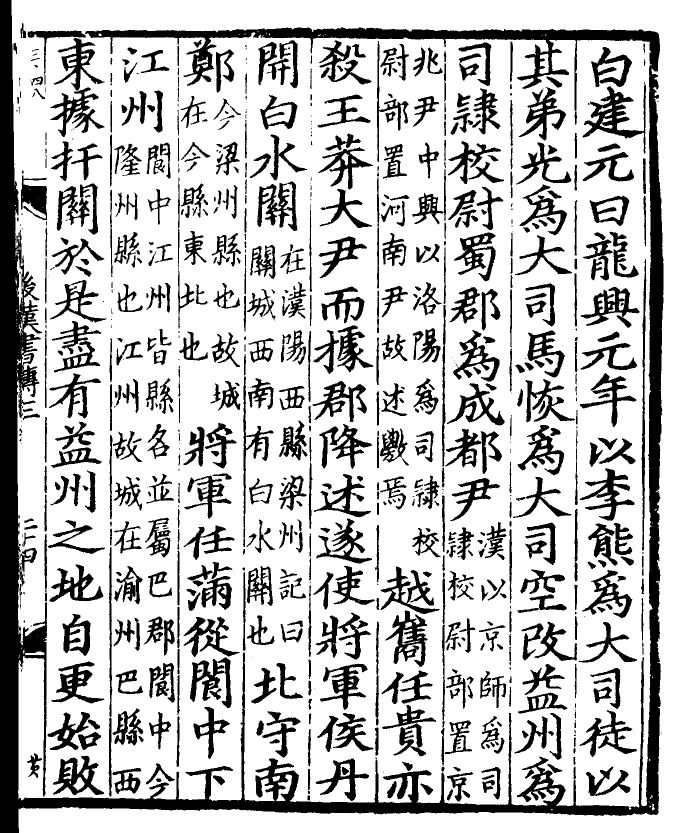 白建元曰龍興元年以李熊爲大司徒以
其弟光爲大司馬恢爲大司空改益州爲
司隸校尉蜀郡爲成都尹漢以京師爲司隸校尉部置京
兆尹中興以洛陽爲司隸校尉部置河南尹故述斆焉越嶲任貴亦
殺王莽大尹而據郡降述遂使將軍侯丹
開白水關在漢陽西縣梁州記曰關城西南有白水關也北守南
鄭今梁州縣也故城在今縣東北也將軍任蒲從閬中下
江州閬中江州皆縣名並屬巴郡閬中今隆州縣也江州故城在渝州巴縣西
東據扞關於是盡有益州之地自更始敗
後漢書傳三
二十四